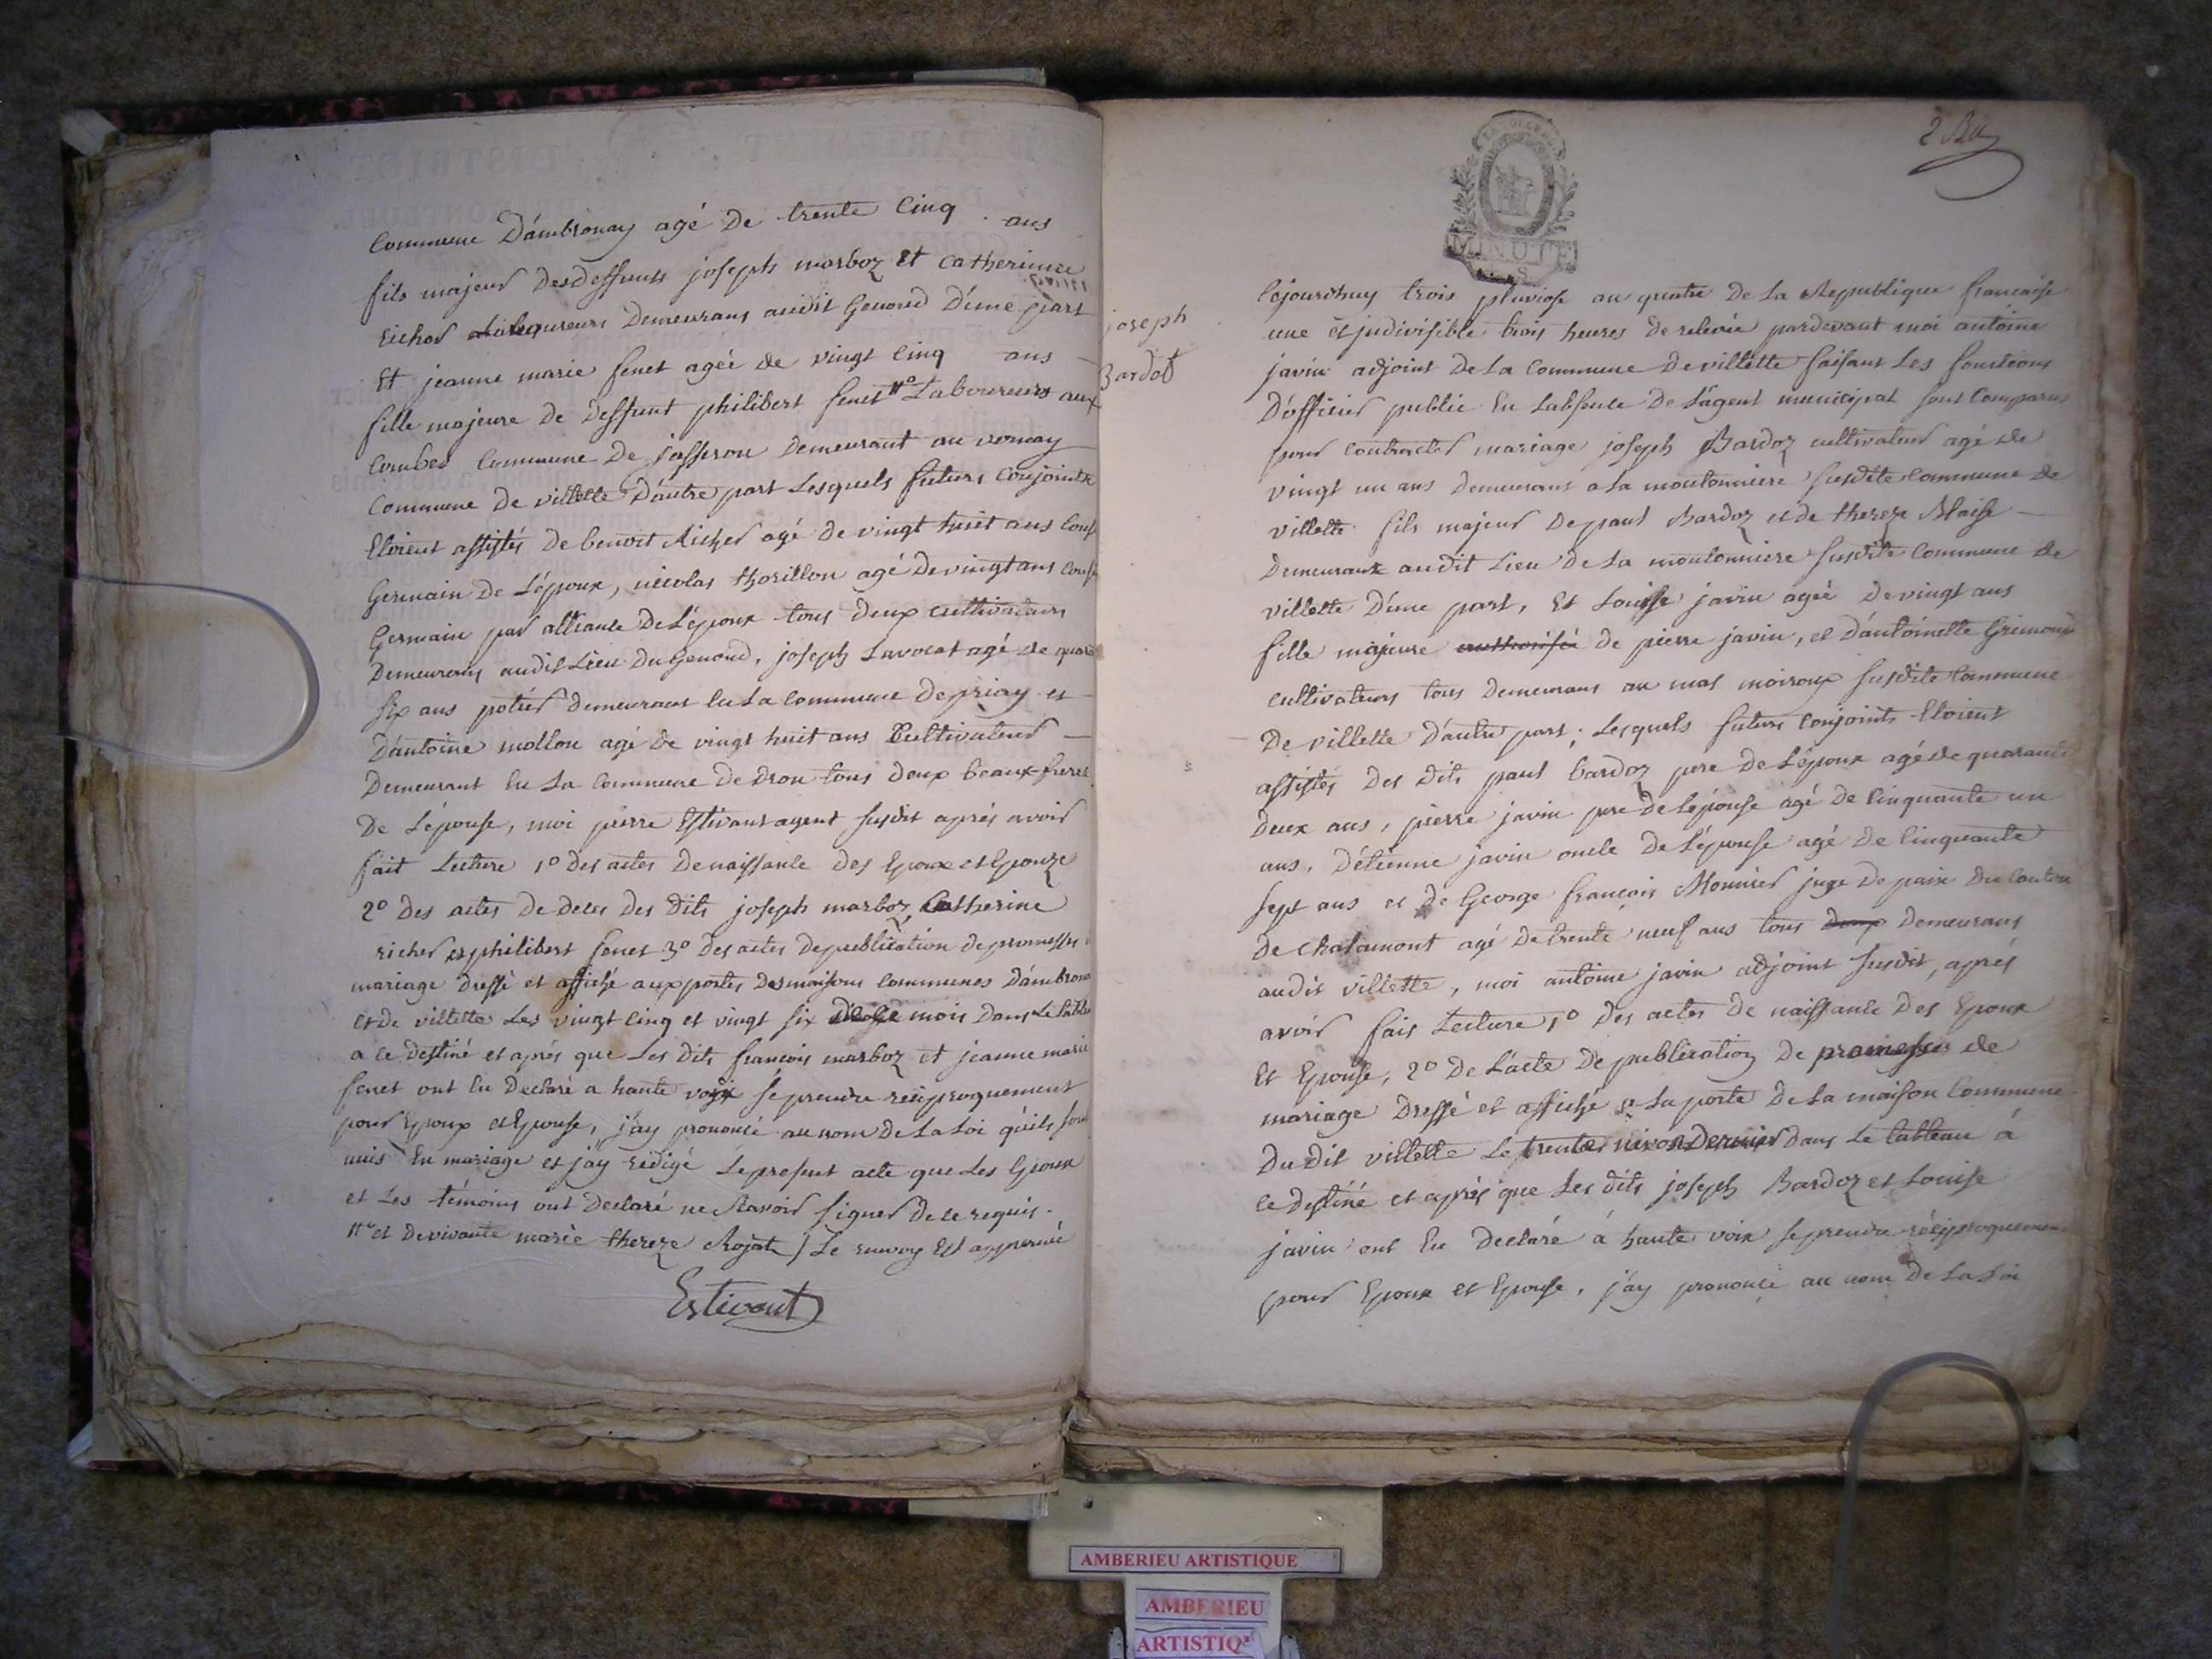 Commune D'ambronay agé De trente Cinq ans
fils majeur Desdeffunts joseph marboz et Catherinne
richer Laboureurs Demeurans audit Genoud D'une part
Et jeanne marie fenet agée de vingt Cinq ans
fille majeure de Deffunt philibert fenet Laboureurs aux
Combes Commune De jasseron Demeurant au vernay
Commune de villette D'autre part Lesquels futurs Conjoints
Etoient assistés De benoit Richer agé de vingt huit ans Cous
Germain De L'époux, nicolas thorillon agé De vingt ans Cous
Germain par alliance De L'époux tous Deux Cultivateurs
Demeurans audit Lieu Du Genoud, joseph Lavocat agé de quara
six ans potier demeurant En La Commune De priay et
D'antoine mollon agé De vingt huit ans Cultivateur
Demeurant En La Commune De Drou tous Deux beaux-frere
De L'épouse, moi pierre Estivant agent susdit aprés avoir
fait Lecture 1º Des actes De naissance Des Epoux et Epouze
2º Des actes De Deces Des Dits joseph marboz, Catherine
richer et philibert fenet 3º Des actes De publication de promesses
mariage Dressé et affiché aux portes Des maisons Communes D'ambrona
et De villette Les vingt Cinq et vingt six mois Dans Le table
a ce Destiné et aprés que Les Dits francois marboz et jeanne marie
fenet ont Eu Declaré a haute voix se prendre réciproquement
pour Epoux et Epouse, j'ay prononcé au nom De La Loi qu'ils sont
unis En mariage et j'ay redigé Le present acte que Les Epoux
et Les témoins ont Declaré ne Scavoir signer De ce requis.
et De vivante marie thereze Rojat / Le renvoy Est approuvé
Estivant
joseph
Bardot
MINUTE
2
Cejourd'huy trois pluviose an quatre De La Republique francaise
une et indivisible trois heures De relevée pardevant moi antoine
javin adjoint De La Commune De villette faisant Les fonctions
D'officier public En Labsence De L'agent municipal sont Comparus
pour Contracter mariage joseph Bardoz cultivateur agé de
vingt un ans Demeurant a La moutonniere susdite Commune de
villette fils majeur De paul Bardoz et de thereze Blaise
Demeurant audit Lieu De La moutonniere susdite Commune de
villette D'une part, Et Louise javin agée De vingt ans
fille majeure authorisée de pierre javin, et D'antoinette Grimoud
cultivateurs tous Demeurans au mas moiroux susdite Commune
De villette D'autre part; Lesquels futurs Conjoints Etoient
assistés Des Dits paul bardoz pere De L'époux agé de quarante
Deux ans, pierre javin pere De L'épouse agé De Cinquante un
ans, D'étienne javin oncle De L'épouse agé De Cinquante
sept ans et De George françois Monnier juge De paix Du Canton
De Chalamont agé De trente neuf ans tous deux Demeurans
audit villette, moi antoine javin adjoint susdit, aprés
avoir fait Lecture 1º Des actes De naissance Des Epoux
Et Epouse, 2º De L'acte De publication De promesses de
mariage Dressé et affiché a La porte De La maison Commune
Du Dit villette Le trente nivose Dernier Dans Le tableau á
ce Destiné et aprés que Les Dits joseph Bardoz et Louise
javin ont Eu Declaré á haute voix se prendre réciproquement
pour Epoux et Epouse, j'ay prononcé au nom De La Loi
AMBERIEU ARTISTIQUE
AMBERIEU
ARTISTIQ